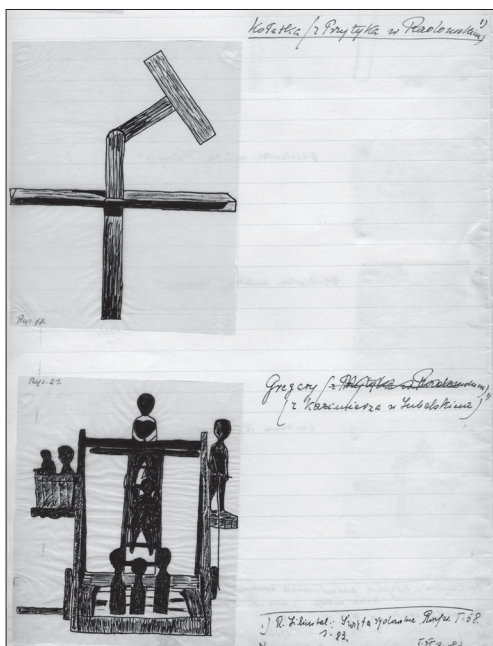 Kołatka (z Przytyka w Radomskim) 1)
Ryc. 18.
Ryc. 21.
Gregery (z Przytyka w Radomskim)
(z Kazimierza w Lubelskiem) 1)
1) R. Lilientalowa: Święta żydowskie, T. 58.
s. 83.